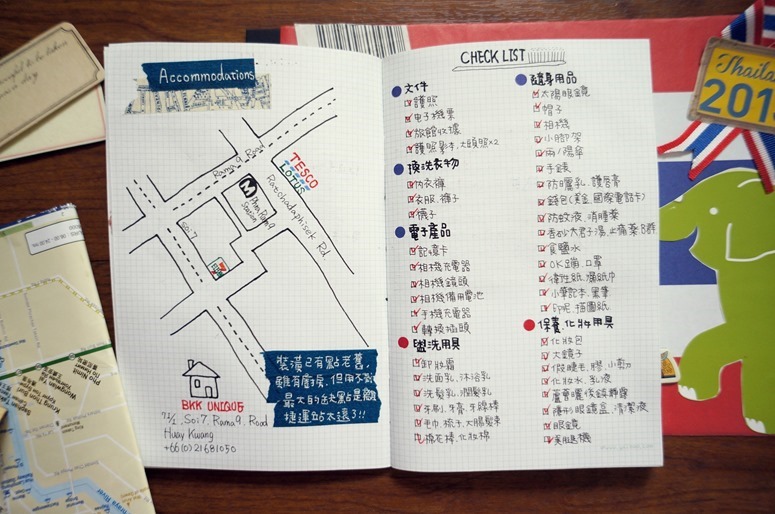 Accommodations
Rama9 Road
TESCO
LOTUS
Ratchadaphisek Rd
M
Phra Ram9
Station
Soi7
裝潢已有點老舊,
雖有廚房,但用不到
最大的缺點是離
捷運站太遠了!!
BKK UNIQUE
7½, Soi7, Rama9, Road
Huay Kwang
+66(0)21681050
CHECK LIST
文件
護照
电子機票
旅館收據
護照影本.大頭照×2
換洗衣物
內衣褲
衣服.褲子
襪子
電子產品
記憶卡
相機充電器
相機鏡頭
相機備用電池
手機充電器
轉換插頭
盥洗用具
卸妝霜
洗面乳.沐浴乳
洗髮乳.潤髮乳
牙刷.牙膏.牙線棒
毛巾.梳子.大腸髮束
棉花棒.化妝棉
隨身用品
太陽眼鏡
帽子
相機
小腳架
雨/陽傘
手錶
防曬乳.護唇膏
錢包(美金.國際電話卡)
防蚊液.
食鹽水
OK繃.口罩
衛生紙.濕紙巾
小筆記本.黑筆
保養.化妝用具
化妝包
大鏡子
假睫毛.膠.小剪刀
化妝水.乳液
隱形眼鏡盒.清潔液
眼鏡
Thailand
201